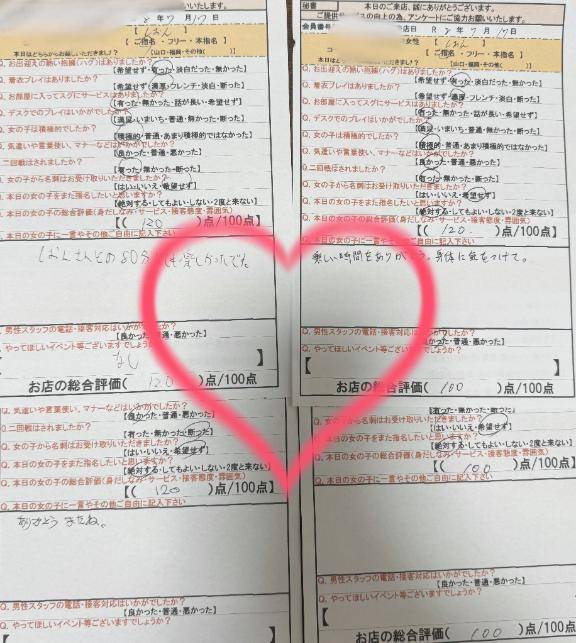 いたします。
8年 7月 17日
【 しおん 】
【 ご指名・フリー・本指名 】
本日はどちらからお越しいただきました? 【山口・福岡・その他( )】
Q. お出迎えの熱い抱擁(ハグ)はありましたか?
【希望せず・有った・淡白だった・無かった】
Q. 着衣プレイはありましたか?
【希望せず・濃厚・フレンチ・淡白・断り】
Q. お部屋に入ってスグにサービスはありましたか?
【有った・無かった・話が長い・希望せず】
Q. デスクでのプレイはいかがでしたか?
【満足・いまいち・普通・無かった・断り】
Q. 女の子は積極的でしたか?
【積極的・普通・あまり積極的ではなかった】
Q. 気遣いや言葉使い、マナーなどはいかがでしたか?
【良かった・普通・悪かった】
二回戦はされましたか?
【有った・無かった・断った】
Q. 女の子から名刺はお受け取りいただきましたか?
【はい・いいえ・希望せず】
Q. 本日の女の子をまた指名したいと思いますか?
【絶対する・してもよい・しない・2度と来ない】
本日の女の子の総合評価(身だしなみ・サービス・接客態度・雰囲気)
【( 120 )点/100点】
本日の女の子に一言やその他ご自由に記入下さい
しおんさんとの80分
男性スタッフの電話・接客対応はいかがでしたか?
【良かった・普通・悪かった】
やってほしいイベント等ございますでしょうか?
なし
お店の総合評価( 120 )点/100点
秘書
本日のご来店、誠にありがとうございます。
ご提供サービスの向上の為、アンケートにご協力お願いいたします。
会員番号
店日 R 8年 7月 17日
女性 【 しおん 】
【 ご指名・フリー・本指名 】
【山口・福岡・その他( )】
Q. お出迎えの熱い抱擁(ハグ)はありましたか?
【希望せず・有った・淡白だった・無かった】
Q. 着衣プレイはありましたか?
【希望せず・濃厚・フレンチ・淡白・断り】
Q. お部屋に入ってスグにサービスはありましたか?
【有った・無かった・話が長い・希望せず】
Q. デスクでのプレイはいかがでしたか?
【満足・いまいち・普通・無かった・断り】
Q. 女の子は積極的でしたか?
【積極的・普通・あまり積極的ではなかった】
Q. 気遣いや言葉使い、マナーなどはいかがでしたか?
【良かった・普通・悪かった】
Q. 二回戦はされましたか?
【有った・無かった・断った】
Q. 女の子から名刺はお受け取りいただきましたか?
【はい・いいえ・希望せず】
Q. 本日の女の子をまた指名したいと思いますか?
【絶対する・してもよい・しない・2度と来ない】
Q. 本日の女の子の総合評価(身だしなみ・サービス・接客態度・雰囲気)
【( 120. )点/100点】
Q. 本日の女の子に一言やその他ご自由に記入下さい
楽しい時間をありがとう。身体に気をつけて。
Q. 男性スタッフの電話・接客対応はいかがでしたか?
・普通・悪かった】
Q. やってほしいイベント等ございますでしょうか?
【 】
お店の総合評価( 100 )点/100点
Q. 気遣いや言葉使い、マナーなどはいかがでしたか?
【良かった・普通・悪かった】
Q. 二回戦はされましたか?
【有った・無かった・断った】
Q. 女の子から名刺はお受け取りいただきましたか?
【はい・いいえ・希望せず】
Q. 本日の女の子をまた指名したいと思いますか?
【絶対する・してもよい・しない・2度と来ない】
Q. 本日の女の子の総合評価(身だしなみ・サービス・接客態度・雰囲気)
【( 120 )点/100点】
Q. 本日の女の子に一言やその他ご自由に記入下さい
ありがとう またね。
Q. 男性スタッフの電話・接客対応はいかがでしたか?
【良かった・普通・悪かった】
Q. やってほしいイベント等ございますでしょうか?
【有った・無かった・断った】
Q. 女の子から名刺はお受け取りいただきましたか?
【はい・いいえ・希望せず】
Q. 本日の女の子をまた指名したいと思いますか?
【絶対する・してもよい・しない・2度と来ない】
Q. 本日の女の子の総合評価(身だしなみ・サービス・接客態度・雰囲気)
【( 100 )点/100点】
Q. 本日の女の子に一言やその他ご自由に記入下さい
Q. 男性スタッフの電話・接客対応はいかがでしたか?
【良かった・普通・悪かった】
Q. やってほしいイベント等ございますでしょうか?
【 】
お店の総合評価( 100 )点/100点